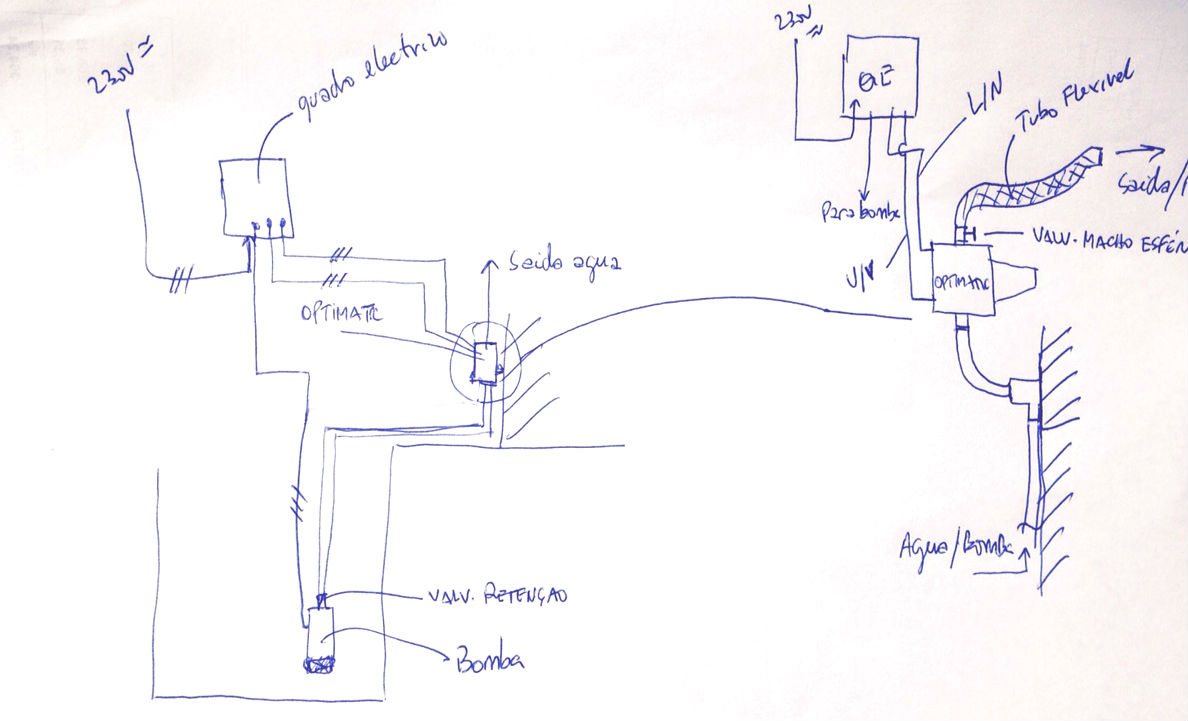 230V ≈
quadro electrico
OPTIMATIC
Saida agua
VALV. RETENÇAO
Bomba
230V
≈
QE
L/N
Tubo Flexivel
Saida/
Para bomba
VALV. MACHO ESFÉR
OPTIMATIC
Agua/Bomba